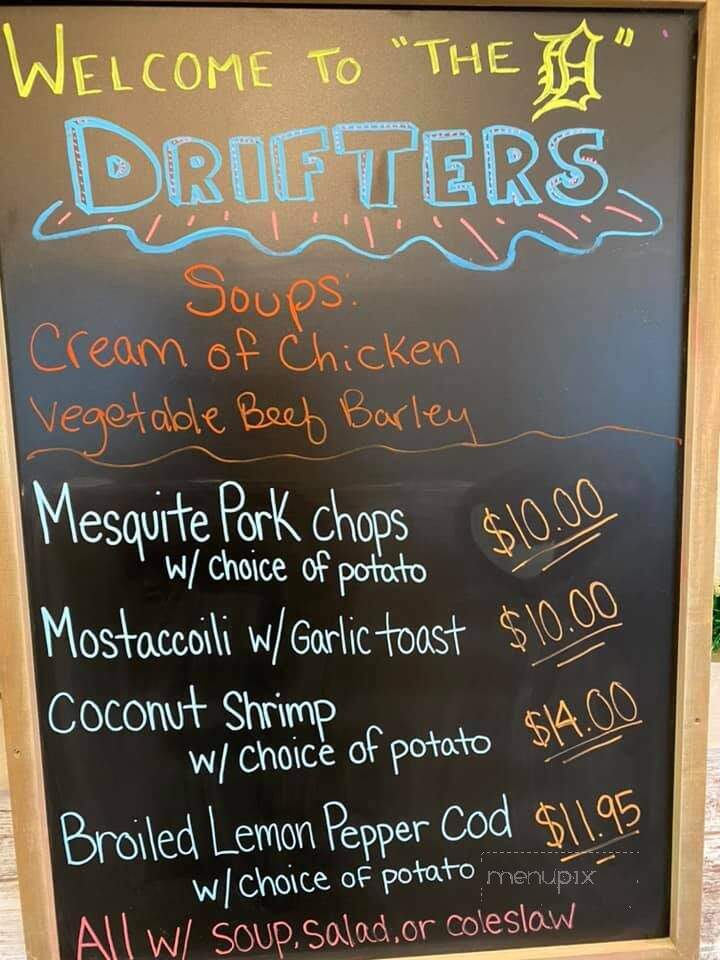 WELCOME TO "THE D"
DRIFTERS
Soups:
Cream of Chicken
Vegetable Beef Barley
Mesquite Pork Chops $10.00
w/ choice of potato
Mostaccoili w/ Garlic toast $10.00
Coconut Shrimp $14.00
w/ choice of potato
Broiled Lemon Pepper Cod $11.95
w/ choice of potato
menupix
All w/ soup, salad, or coleslaw